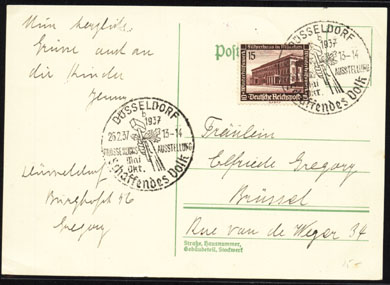 Nun herzliche
Grüsse auch an
die Kinder
Düsseldorf
Gregory
Postkarte
15
Deutsches Reich
DÜSSELDORF
1937
25.2.37 13-14
REICHSAUSSTELLUNG
Mai
Okt.
Schaffendes Volk
DÜSSELDORF
1937
13-14
AUSSTELLUNG
Mai
Okt.
Schaffendes Volk
Fräulein
Elfriede Gregory
Brüssel
Rue van de Weyer 34
Straße, Hausnummer,
Gebäudeteil, Stockwerk